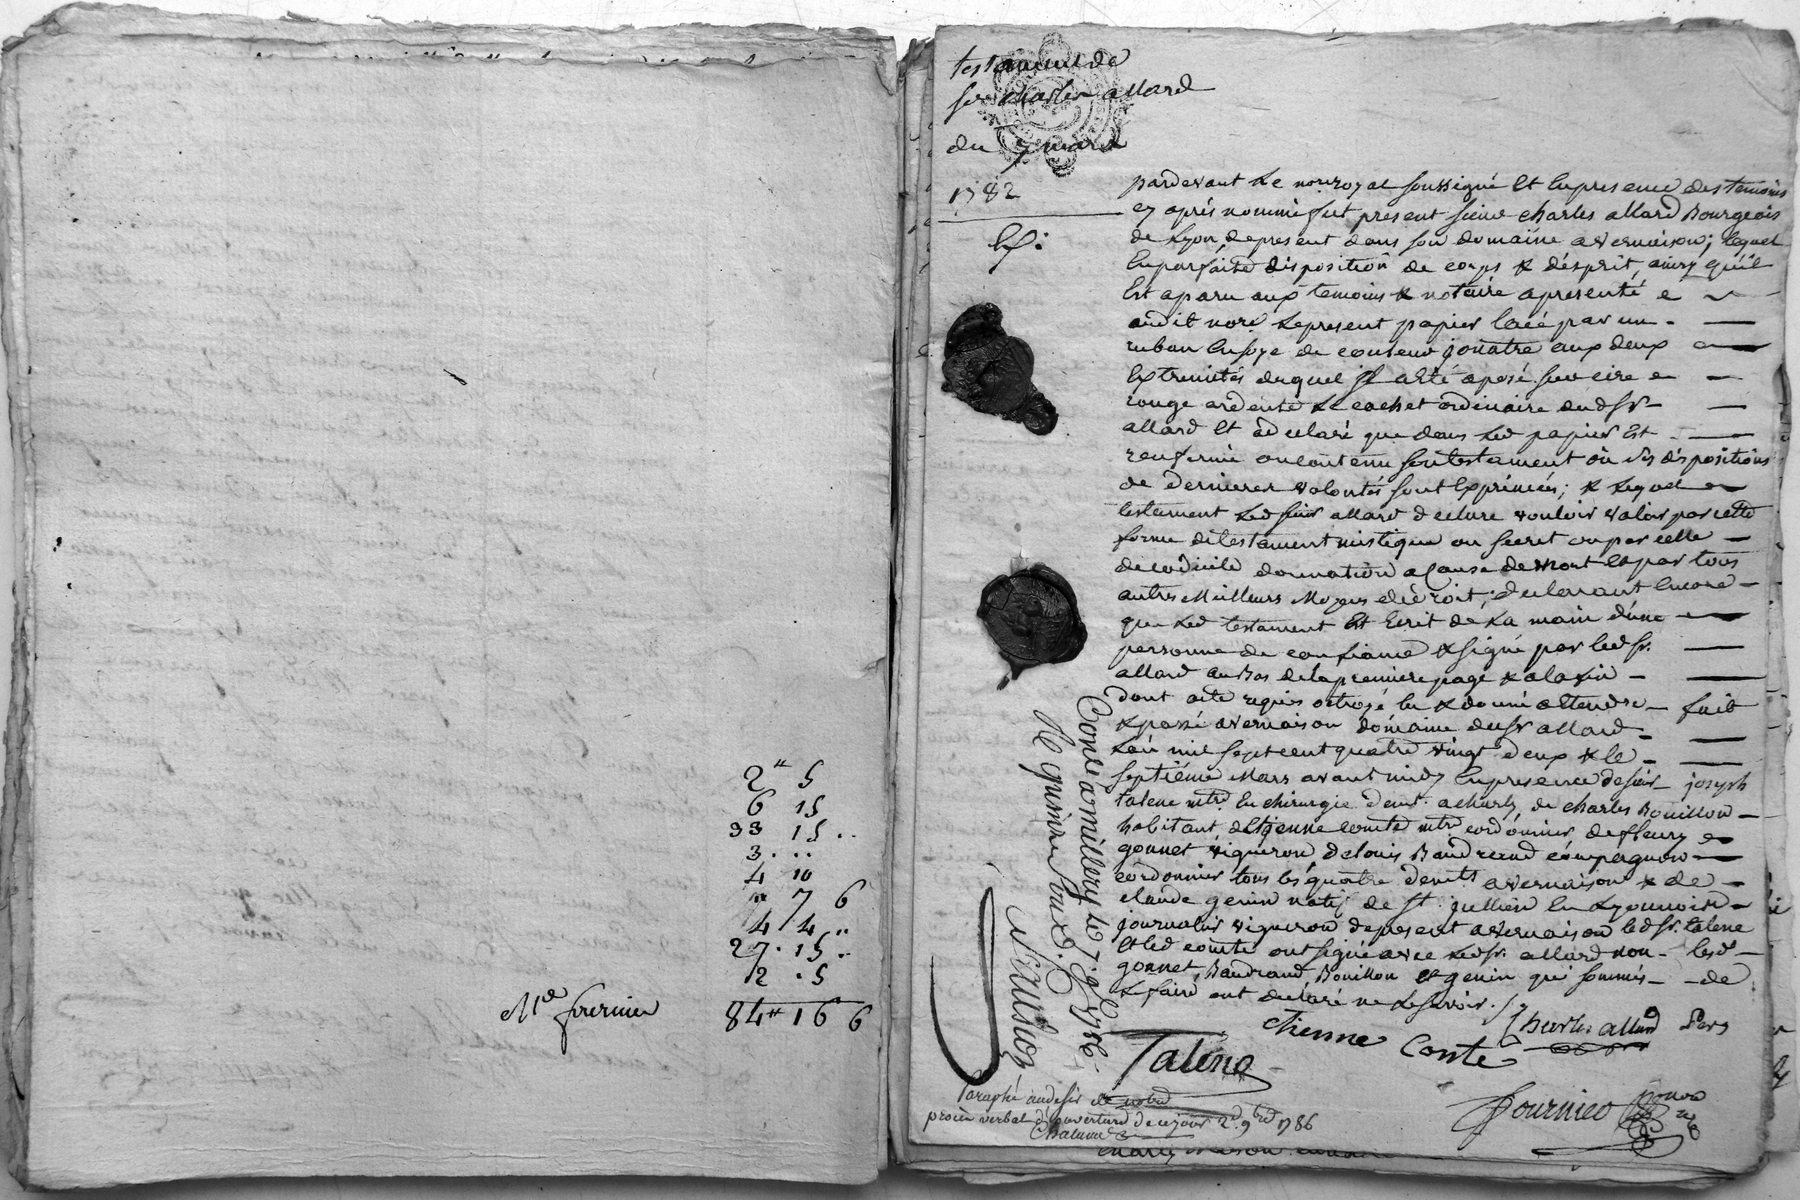 2 ₶ 5
6 15
33 15 ..
3 . ..
4 10
" 7 6
4 4 ..
27 . 15 ..
2 . 5
Mre fournier 84 ₶ 16 6
testament de
sr charles allard
du 7 mars
1782
Exp:
pardevant Le nore royal soussigné Et En presence des temoins
cy aprés nommé fut present sieur charles allard Bourgeois
de Lyon, de present dans son domaine a vernaison; lequel
En parfaite disposition de corps & désprit, ainsy qu'il
Est aparu aux temoins & notaire a presenté
audit nore Le present papier lacé par un
ruban En soye de couleur jonatre aux deux
Extremités duquel il a été aposé sur cire
rouge ardente Le cachet ordinaire dud sr
allard Et a déclaré que dans Led papier Est
renfermé ou contenu son testament où ses dispositions
de dernieres volontés sont Exprimées; & Lequel
testament Led sieur allard declare vouloir valoir par cette
forme de testament mistique ou secret ou par celle
de codicile donnation a Cause de mort Et par tous
autres Meilleurs Moyens de droit; declarant Encore
que Led testament Est Ecrit de La main d'une
personne de confiance & signé par led sr.
allard au Bas de la premiere page & a la fin
dont acte requis octroyé lu & donné a Entendre fait
& passé a vernaison domaine dud sr allard
L'an mil sept cent quatre vingt deux & le
septiéme Mars avant midy En presence de sieur joseph
talene mtre En chirurgie demt. a charly de charles Bouillon
habitant, d'Etienne comte mtre cordonnier de fleury
gonnet vigneron de louis Baudrand compagnon
cordonnier tous les quatre demts. a vernaison & de
claude genin natif de st. jullien En Lyonnois
journalier vigneron de present a vernaison led sr. talene
Et led comte ont signé avec Led sr. allard non led
gonnet, Baudrand Bouillon & genin qui sommés de
Le faire ont declaré ne Le savoir.
Charles allard
etienne Conte
Talene
fournier
Paraphé au desir de notre
procès verbal d'ouverture de ce jour 2d. 9bre 1786
Conlé a millery le 7. 9bre 1786